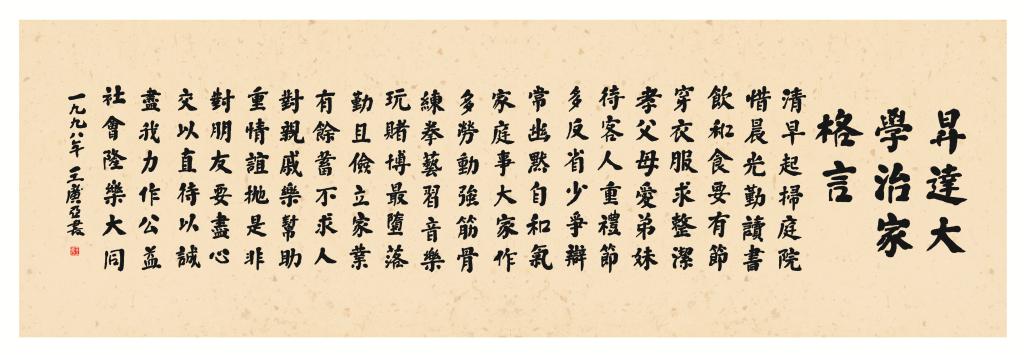 昇達大
學治家
格言
清早起掃庭院
惜晨光勤讀書
飲和食要有節
穿衣服求整潔
孝父母愛弟妹
待客人重禮節
多反省少爭辯
常幽默自和氣
家庭事大家作
多勞動強筋骨
練拳藝習音樂
玩賭博最墮落
勤且儉立家業
有餘蓄不求人
對親戚樂幫助
重情誼拋是非
對朋友要盡心
交以直待以誠
盡我力作公益
社會隆樂大同
一九九八年 王廣亞書